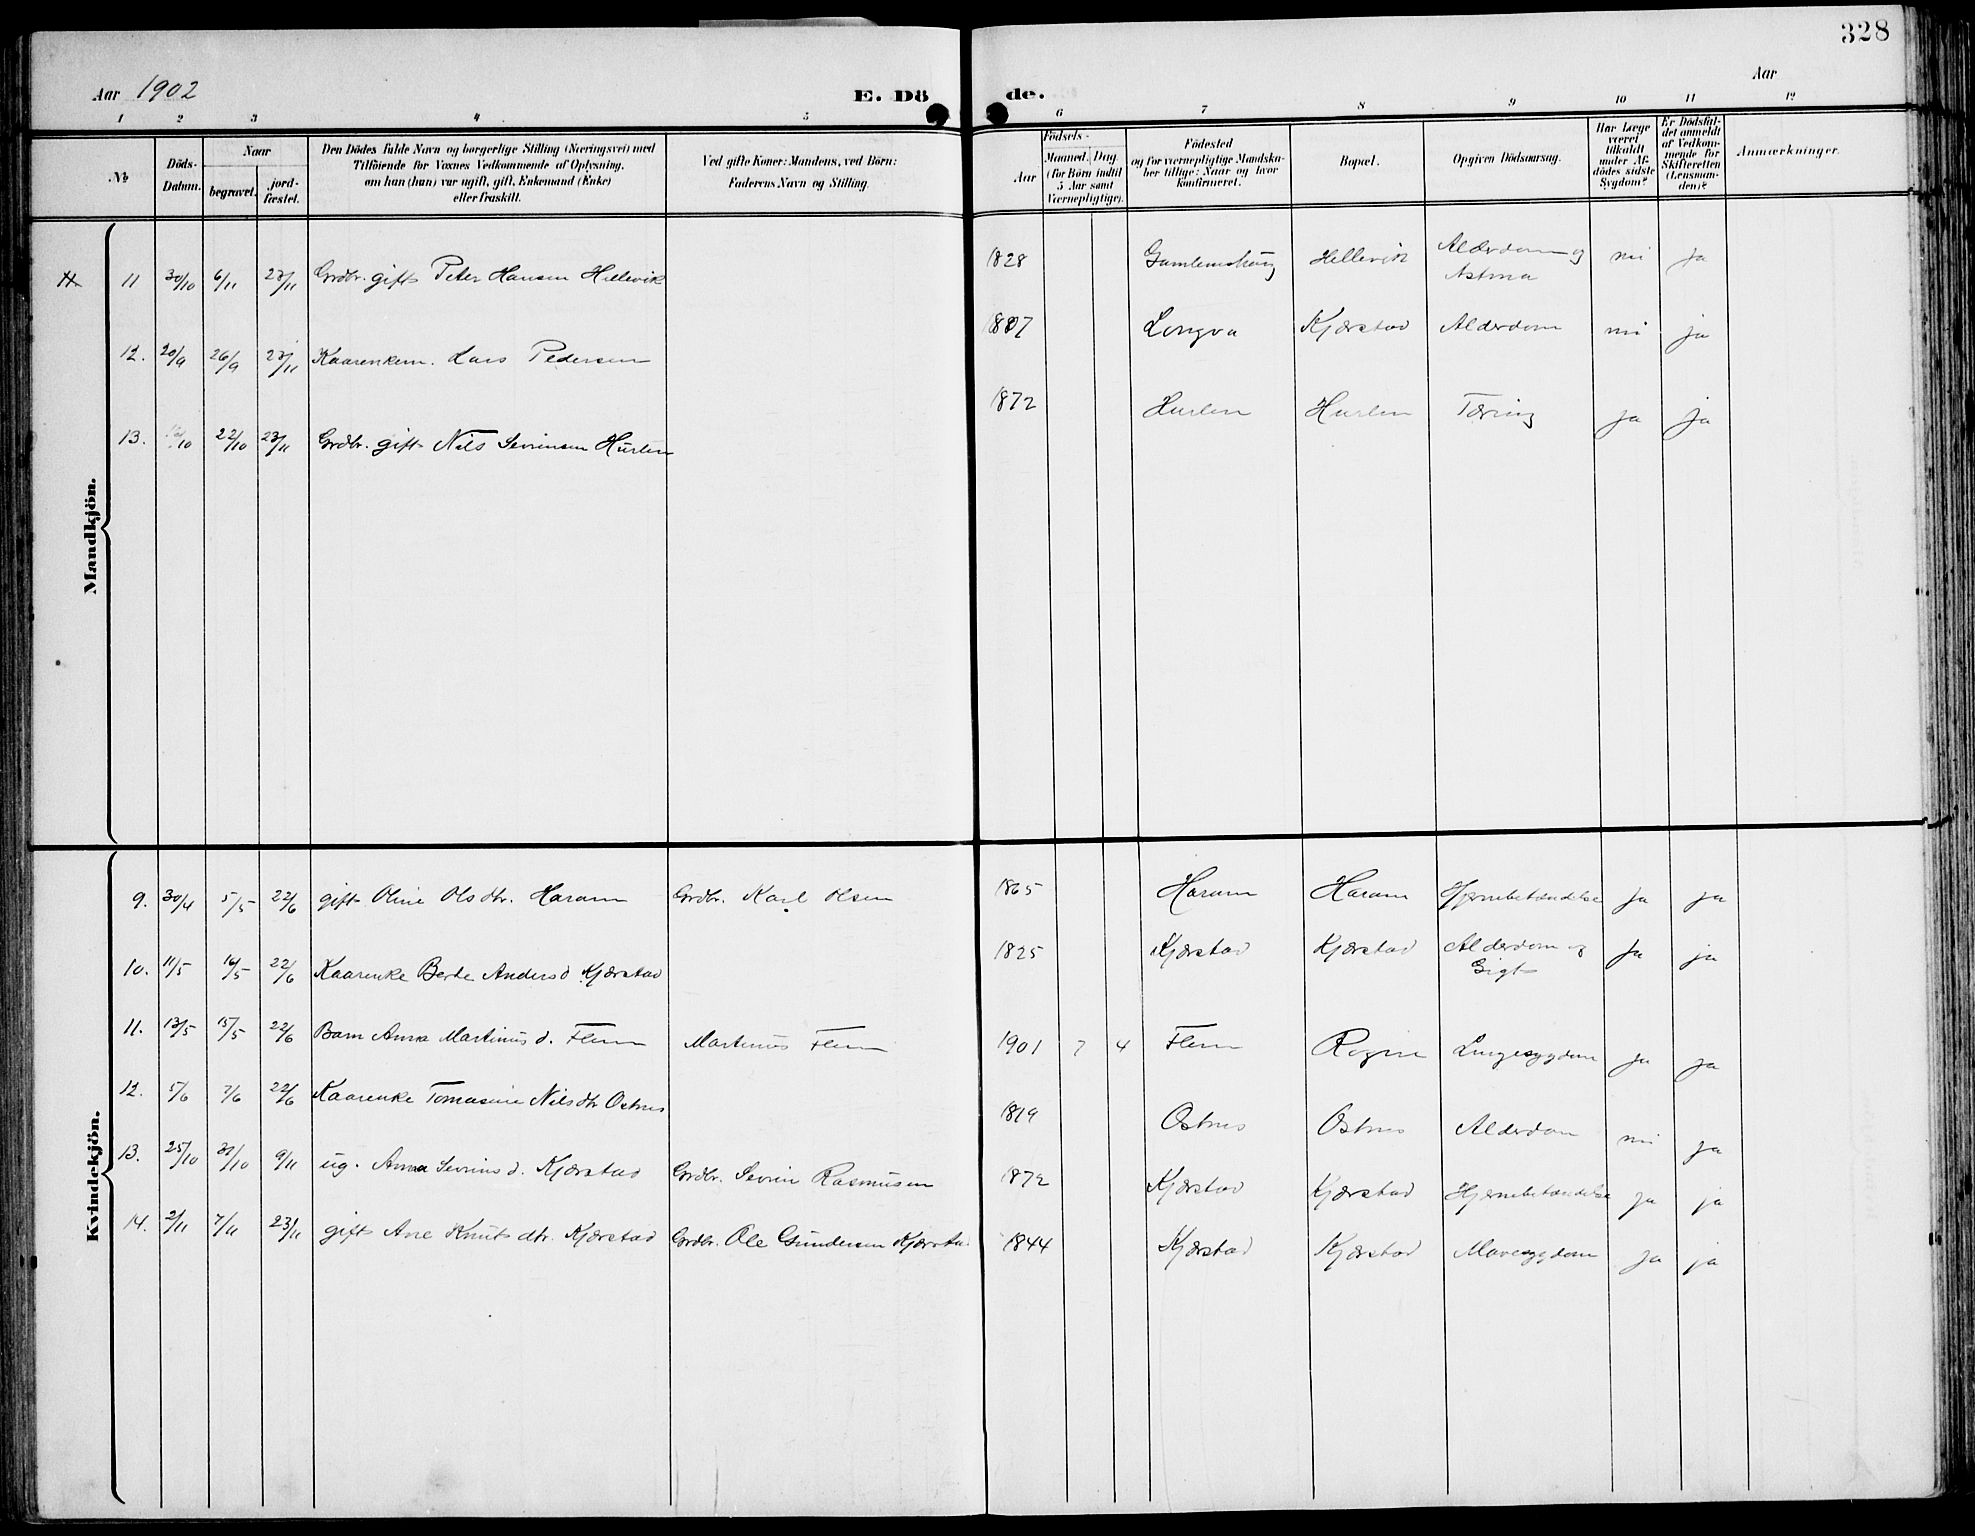 328
Aar 1902
E. Dö
de.
Aar
1 2 3 4 5 6 7 8 9 10 11 12
No
Döds-
Datum.
Naar
begravet.
jord-
fæstet.
Den Dödes fulde Navn og borgerlige Stilling (Næringsvei) med
Tilföiende for Voxnes Vedkommende af Oplysning,
om han (hun) var ugift, gift, Enkemand (Enke)
eller fraskilt.
Ved gifte Koner: Mandens, ved Börn:
Faderens Navn og Stilling.
Födsels-
Aar
Maaned. Dag.
(for Börn indtil
5 Aar samt
Værnepligtige).
Födested
og for værnepligtige Mandska-
ber tillige: Naar og hvor
konfirmeret.
Bopæl.
Opgiven Dödsaarsag.
Har Læge
været
tilkaldt
under Af-
dödes sidste
Sygdom?
Er Dödsfal-
det anmeldt
af Vedkom-
mende for
Skifteretten
(Lensman-
den)?
Anmærkninger.
Mandkjön.
11 30/10 6/11 23/11 Grdbr. gift Peter Hansen Hellevik 1828 Gamlemshaug Hellevik Alderdom og Astma nei ja
12. 20/9 26/9 23/11 Kaarenkem. Lars Pedersen 1817 Longva Kjærstad Alderdom nei ja
13. /10 22/10 23/11 Grdbr. gift Nils Sevrinsen Hurlen 1872 Hurlen Hurlen Tæring ja ja
Kvindekjön.
9. 30/4 5/5 22/6 gift Oline Olsdtr. Haram Grdbr. Karl Olsen 1865 Haram Haram Hjernebetændelse ja ja
10. 11/5 16/5 22/6 Kaarenke Berte Andersd. Kjærstad 1825 Kjærstad Kjærstad Alderdom og Gigt ja ja
11. 13/5 15/5 22/6 Barn Anna Martinus d. Flem Martinus Flem 1901 7 4 Flem Rogne Lungesygdom ja ja
12. 5/6 7/6 22/6 Kaarenke Tomasine Nilsdtr Ostnes 1819 Ostnes Ostnes Alderdom nei ja
13. 25/10 30/10 9/11 ug. Anna Sevrins d. Kjærstad Grdbr. Sevrin Rasmusen 1872 Kjærstad Kjærstad Hjernebetændelse ja ja
14. 2/11 7/11 23/11 gift Ane Knutsdtr. Kjærstad Grdbr. Ole Gundersen Kjærstad 1844 Kjærstad Kjærstad Mavesygdom ja ja